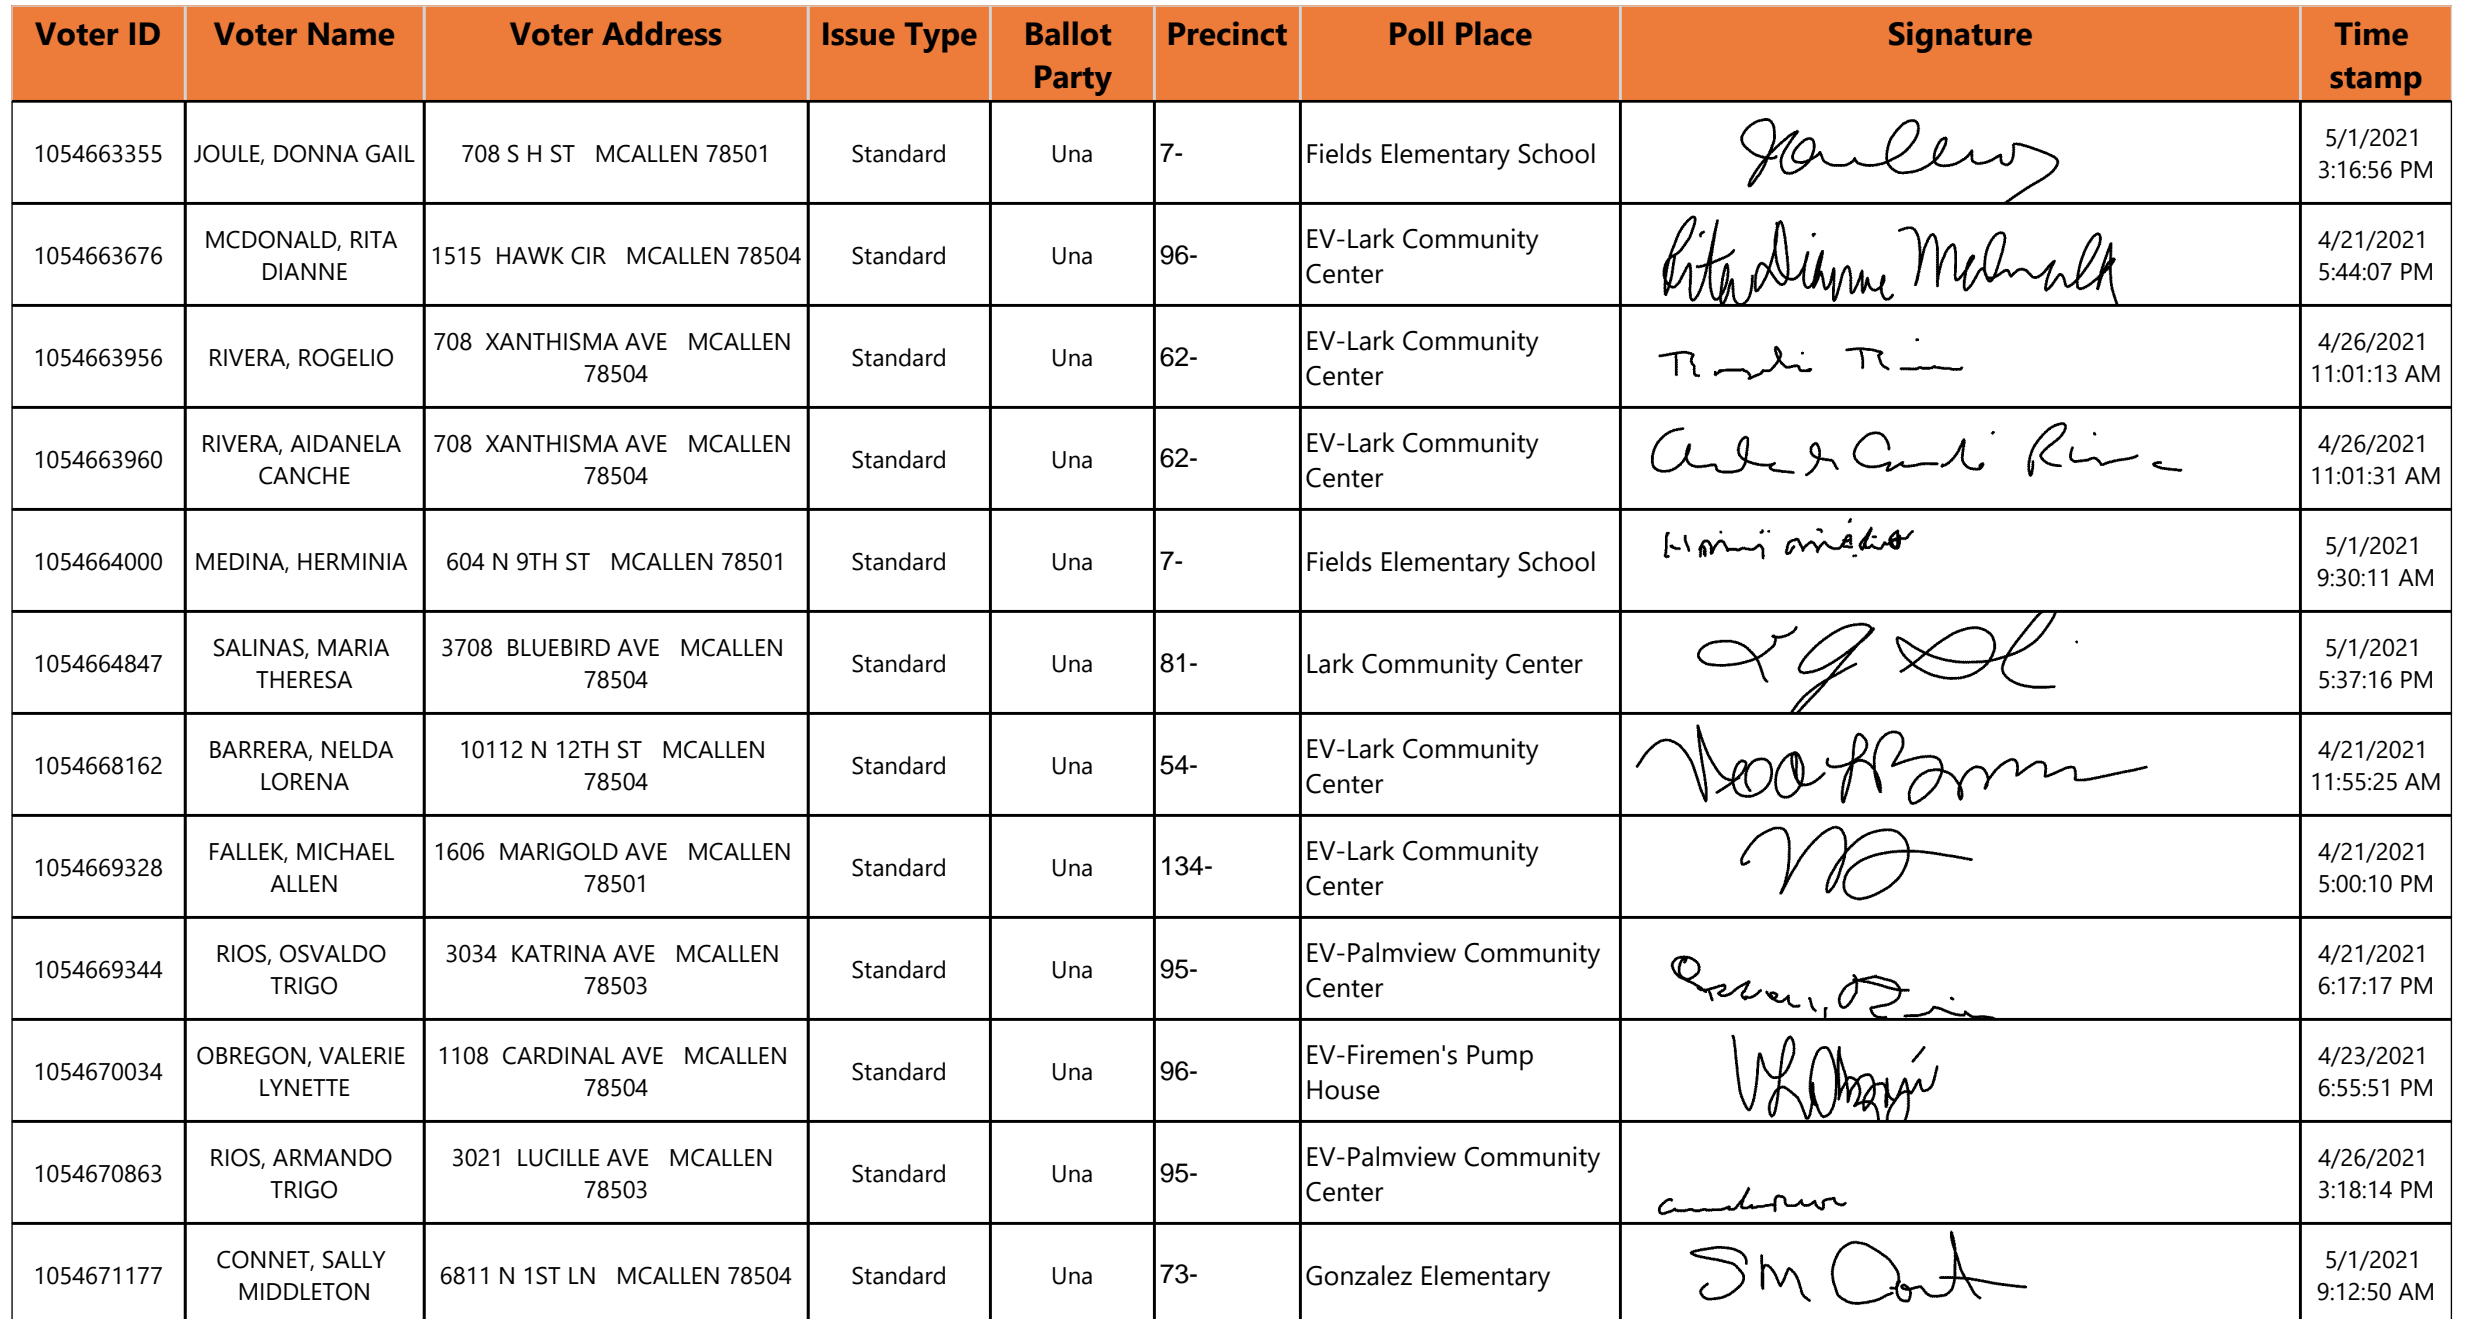 Voter ID Voter Name Voter Address Issue Type Ballot Party Precinct Poll Place Signature Time stamp
1054663355 JOULE, DONNA GAIL 708 S H ST MCALLEN 78501 Standard Una 7- Fields Elementary School 5/1/2021 3:16:56 PM
1054663676 MCDONALD, RITA DIANNE 1515 HAWK CIR MCALLEN 78504 Standard Una 96- EV-Lark Community Center Rita Dianne McDonald 4/21/2021 5:44:07 PM
1054663956 RIVERA, ROGELIO 708 XANTHISMA AVE MCALLEN 78504 Standard Una 62- EV-Lark Community Center 4/26/2021 11:01:13 AM
1054663960 RIVERA, AIDANELA CANCHE 708 XANTHISMA AVE MCALLEN 78504 Standard Una 62- EV-Lark Community Center 4/26/2021 11:01:31 AM
1054664000 MEDINA, HERMINIA 604 N 9TH ST MCALLEN 78501 Standard Una 7- Fields Elementary School 5/1/2021 9:30:11 AM
1054664847 SALINAS, MARIA THERESA 3708 BLUEBIRD AVE MCALLEN 78504 Standard Una 81- Lark Community Center 5/1/2021 5:37:16 PM
1054668162 BARRERA, NELDA LORENA 10112 N 12TH ST MCALLEN 78504 Standard Una 54- EV-Lark Community Center 4/21/2021 11:55:25 AM
1054669328 FALLEK, MICHAEL ALLEN 1606 MARIGOLD AVE MCALLEN 78501 Standard Una 134- EV-Lark Community Center 4/21/2021 5:00:10 PM
1054669344 RIOS, OSVALDO TRIGO 3034 KATRINA AVE MCALLEN 78503 Standard Una 95- EV-Palmview Community Center 4/21/2021 6:17:17 PM
1054670034 OBREGON, VALERIE LYNETTE 1108 CARDINAL AVE MCALLEN 78504 Standard Una 96- EV-Firemen's Pump House 4/23/2021 6:55:51 PM
1054670863 RIOS, ARMANDO TRIGO 3021 LUCILLE AVE MCALLEN 78503 Standard Una 95- EV-Palmview Community Center 4/26/2021 3:18:14 PM
1054671177 CONNET, SALLY MIDDLETON 6811 N 1ST LN MCALLEN 78504 Standard Una 73- Gonzalez Elementary 5/1/2021 9:12:50 AM